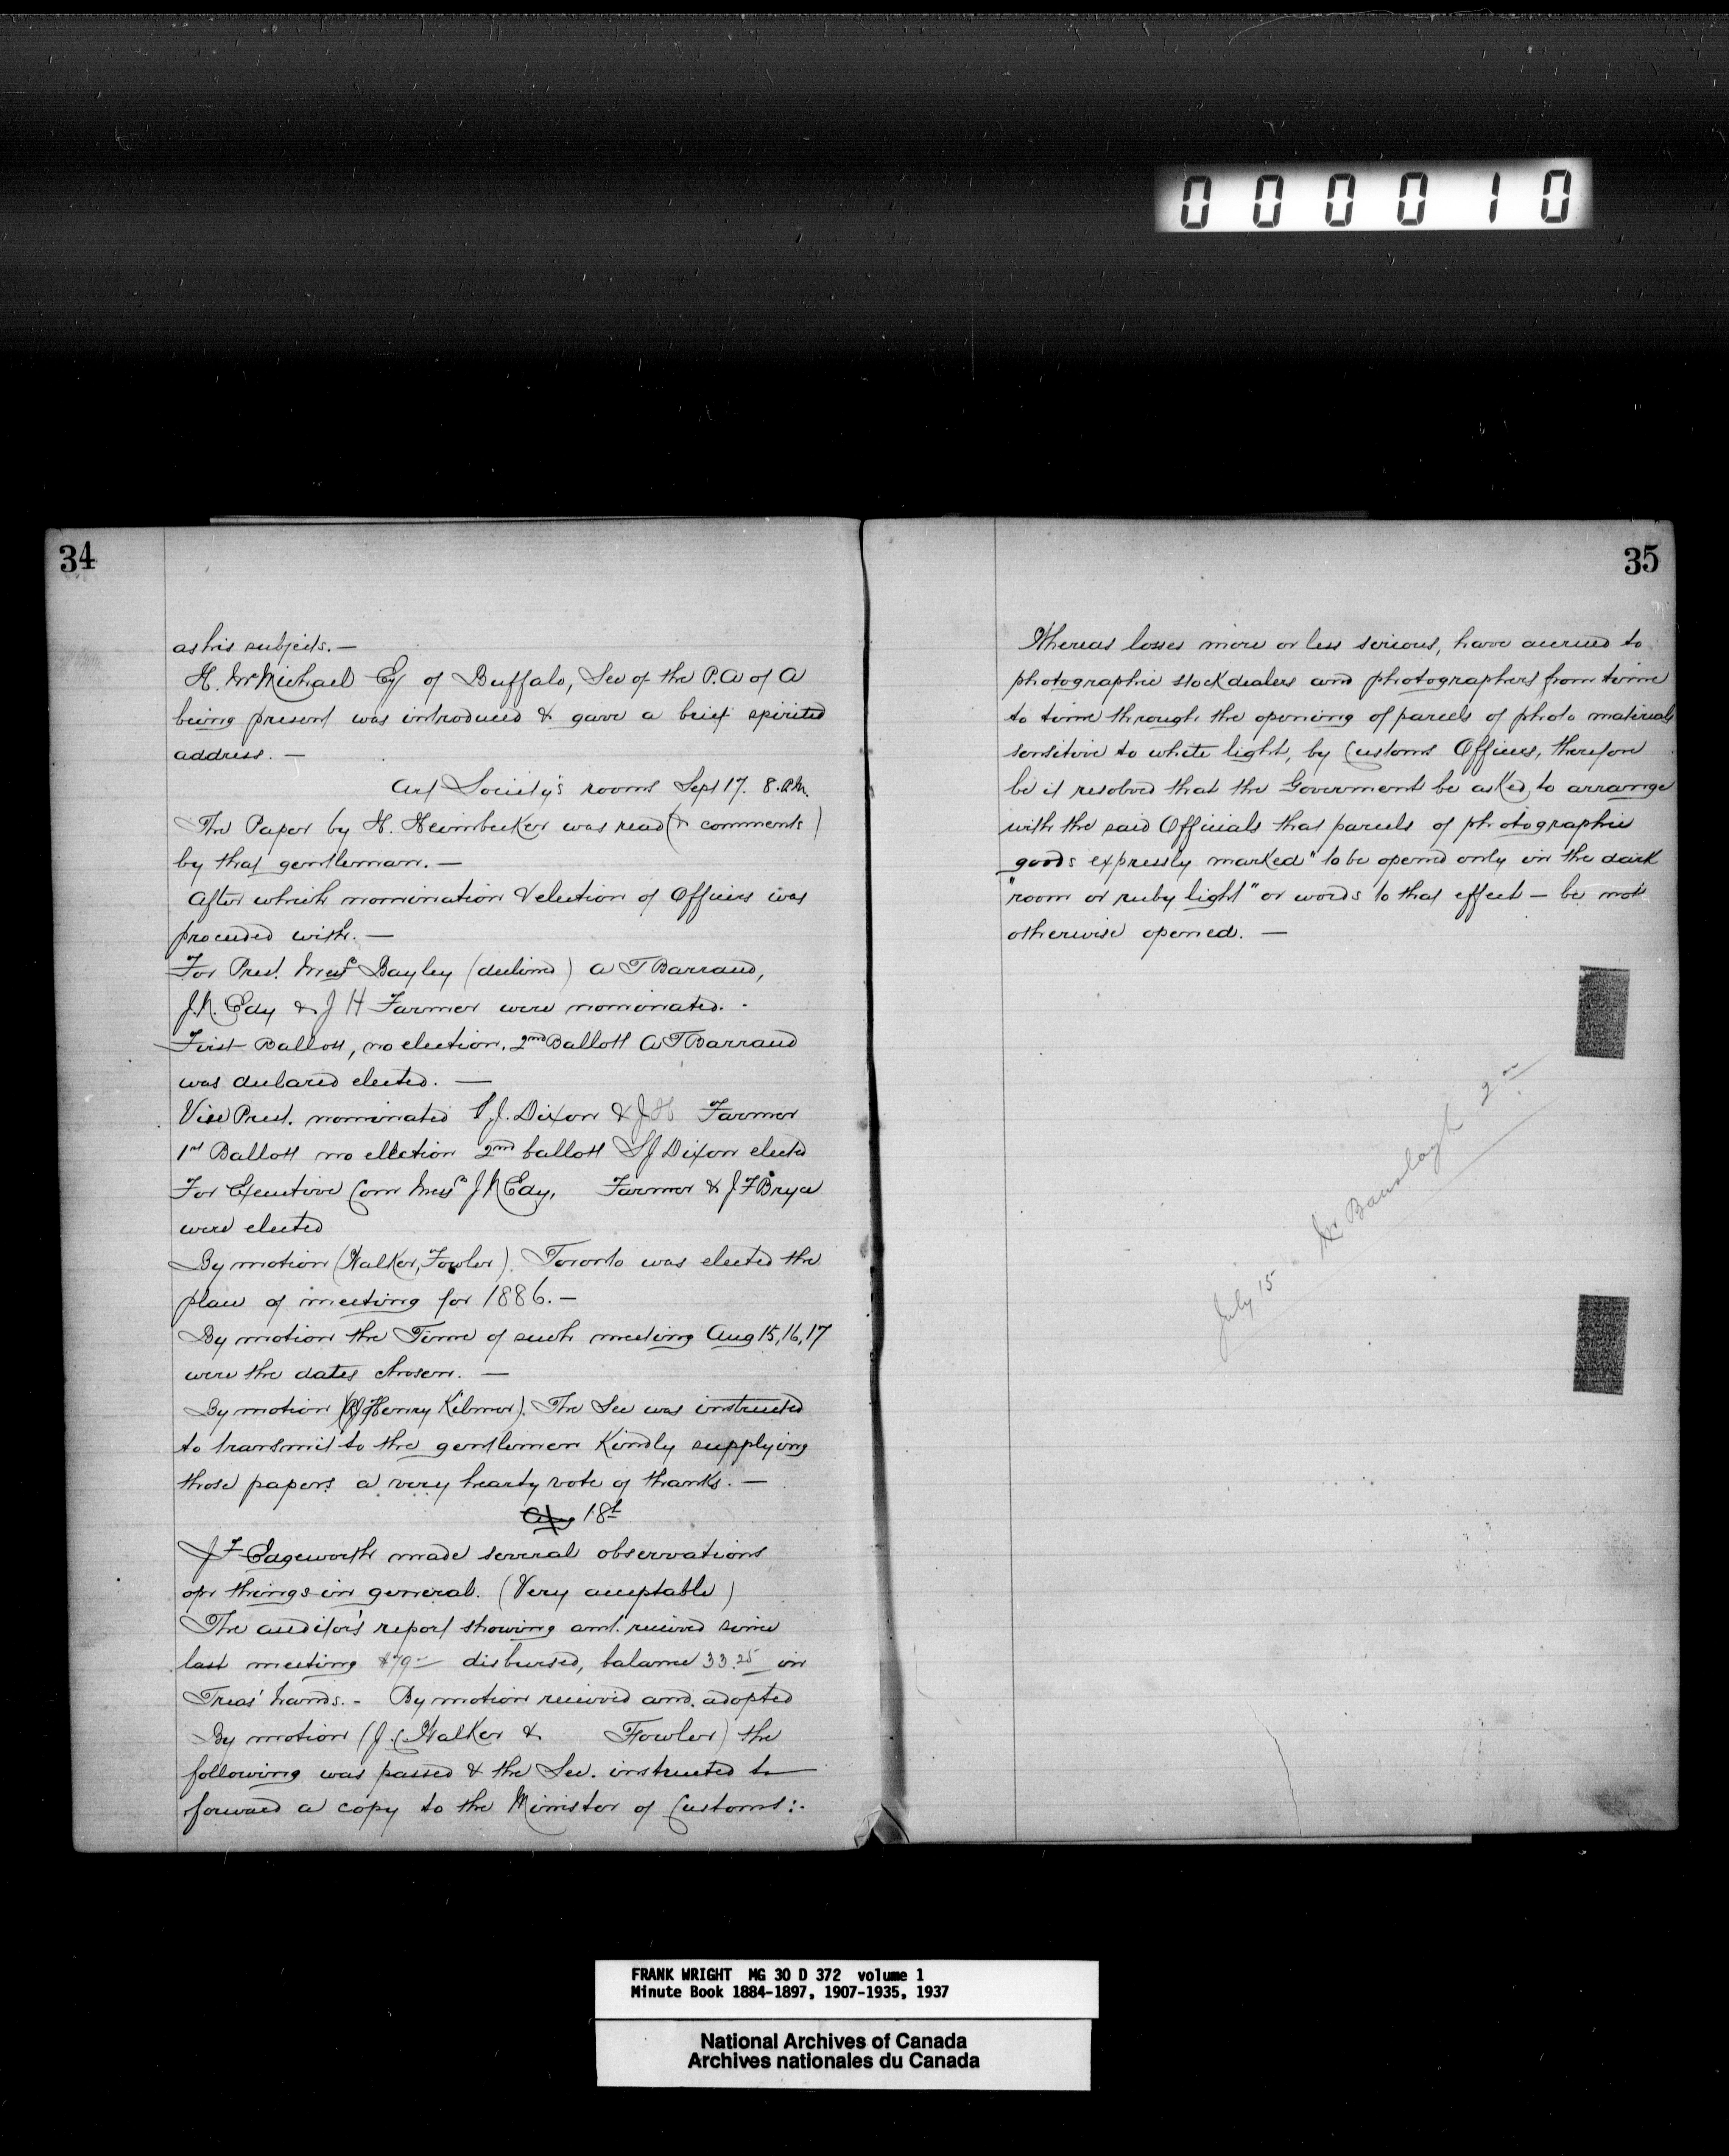 000010
34
as his subjects. —
H. McMichael Esq of Buffalo, Sec of the P. A of A
being present was introduced & gave a brief spirited
address. —
Art Society's rooms Sept 17. 8. P.M.
The Paper by H. Heimbecker was read (& comments)
by that gentleman. —
After which nomination & election of Officers was
proceeded with. —
For Prest. Messrs Bayley (declined) A T Barraud,
J. N. Edy & J H Farmer were nominated. -
First Ballott, no election. 2nd Ballott A T Barraud
was declared elected. —
Vice Prest. nominated S. J. Dixon & J H Farmer
1st Ballott no ellection 2nd ballott S J Dixon elected
For Executive Com Messrs J N Edy, Farmer & J F Bryce
were elected
By motion (Walker, Fowler). Toronto was elected the
place of meeting for 1886. —
By motion the Time of such meeting Aug 15, 16, 17
were the dates chosen. —
By motion (Henry Kilmer). The Sec was instructed
to transmit to the gentlemen Kindly supplying
those papers a very hearty vote of thanks. —
18t
J F Edgeworth made several observations
on things in general. (Very acceptable)
The auditor's report showing amt. received since
last meeting $79 — disbursed, balance 33.25 in
Treas' hands. - By motion received and adopted
By motion (J. C. Walker & Fowler) the
following was passed & the Sec. instructed to
forward a copy to the Minister of Customs:-
35
Whereas losses more or less serious, have accrued to
photographic stock dealers and photographers from time
to time through the opening of parcels of photo materials
sensitive to white light, by Customs Officers, therefore
be it resolved that the Goverment be asked, to arrange
with the said Officials that parcels of photographic
goods expressly marked "to be opened only in the dark
"room or ruby light" or words to that effect — be not
otherwise opened. —
July 15 Dr Banslaugh 2 00
FRANK WRIGHT MG 30 D 372 volume 1
Minute Book 1884-1897, 1907-1935, 1937
National Archives of Canada
Archives nationales du Canada